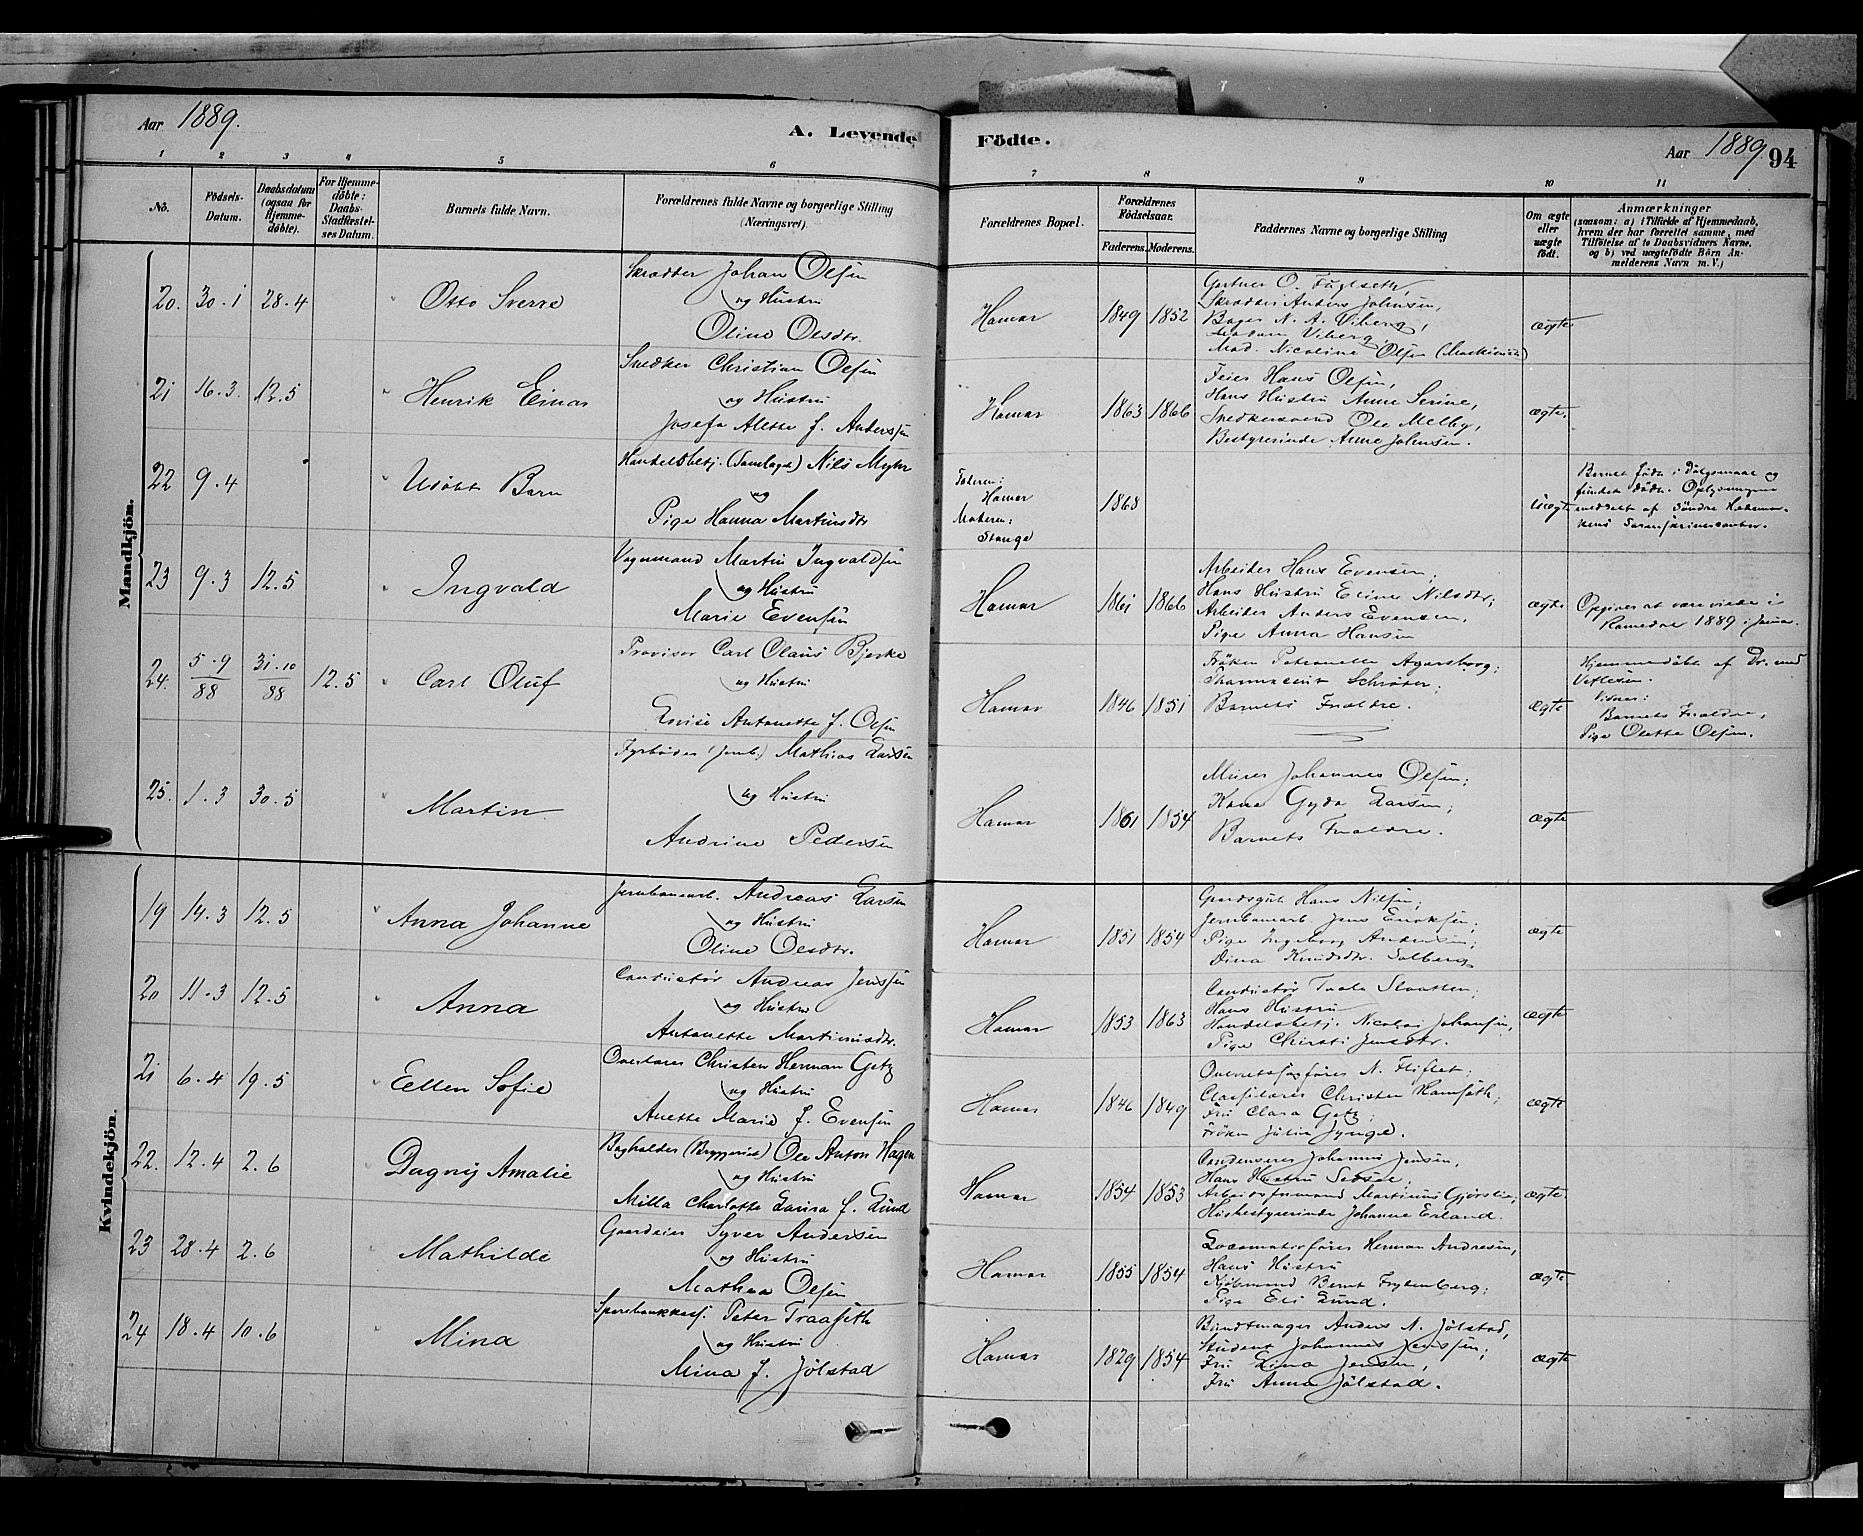 Aar 1889.
A. Levende
Födte.
Aar 1889 94
1 2 3 4 5 6 7 8 9 10 11
No.
Födsels-Datum.
Daabsdatum (ogsaa for Hjemme-döbte).
For Hjemme-döbte: Daabs-Stadfæstel-ses Datum.
Barnets fulde Navn.
Forældrenes fulde Navne og borgerlige Stilling
(Næringsvei).
Forældrenes Bopæl.
Forældrenes Födselsaar.
Faderens. Moderens.
Faddernes Navne og borgerlige Stilling
Om ægte eller uægte födt.
Anmærkninger
(saasom: a) i Tilfælde af Hjemmedaab,
hvem der har forrettet samme, med
Tilföielse af to Daabsvidners Navne,
og b) ved uægtefödte Börn An-
melderens Navn m. V.)
Mandkjön.
20. 30.1 28.4 Otto Sverre
Skrædder Johan Olsen
og Hustru
Oline Olsdtr.
Hamar 1849 1852
Gartner O. Fuglseth,
Skrædder Anders Johnsen,
Bager N. A. Viberg,
Madam Viberg
Mad. Nicoline Olsen
ægte
21 16.3. 12.5 Henrik Einar
Snedker Christian Olsen
og Hustru
Josefa Alette f. Anderssen
Hamar 1863 1866
Feier Hans Olsen,
Hans Hustru Anne Serine,
Snedkersvend Ole Melby,
Bestyrerinde Anne Johnsen.
ægte.
22 9.4 Udöbt Barn
Handelsbetj. (Samlaget) Nils Myhr
og
Pige Hanna Martinsdtr
Faderen:
Hamar
Moderen:
Stange
1868
uægte
Barnet födt i Dölgsmaal og
fundet dödt. Oplysningen
meddelt af Söndre Hedemar-
kens Sorenskrivercontor.
23 9.3 12.5 Ingvald
Vognmand Martin Ingvaldsen
og Hustru
Marie Evensen
Hamar 1861 1866
Arbeider Hans Evensen;
Hans Hustru Eline Nilsdtr;
Arbeider Anders Evensen,
Pige Anna Hansen
ægte
Opgives at være viede i
Romedal 1889 i Januar.
24. 5.9/88 31.10/88 12.5 Carl Oluf
Provisor Carl Claus Bjerke
og Hustru
Lovise Antonette f. Olsen
Hamar 1846 1851
Fröken Petronelle Agersborg;
Pharmaceut Schröder;
Barnets Forældre.
ægte
Hjemmedöbt af Dr. med
Vetlesen.
Vidner:
Barnets Forældre,
Pige Olette Olsen.
25. 1.3 30.5 Martin
Fyrböder (Jernb.) Mathias Larsen
og Hustru
Andrine Pedersen
Hamar 1861 1854
Murer Johannes Olsen;
Kone Gyda Larsen;
Barnets Forældre.
ægte
Kvindekjön.
19 14.3 12.5 Anna Johanne
Jernbanearb. Andreas Larsen
og Hustru
Oline Olsdtr.
Hamar 1851 1854
Gaardsgut Hans Nilsen;
Jernbanearb. Jens Eriksen;
Pige Ingeborg Andersen;
Dina Knudsdtr. Solberg
ægte
20 11.3 12.5 Anna
Conductör Andreas Jenssen
og Hustru
Antonette Martinusdtr.
Hamar 1853 1863
Conductör Slaatten;
Hans Hustru
Handelsbetj. Nicolai Johansen,
Pige Chirsti Jensdtr.
ægte
21 6.4 19.5 Ellen Sofie
Overlærer Christen Herman Getz
og Hustru
Anette Marie f. Evensen
Hamar 1846 1849
Overretssagförer N. Fliflet;
Christen Ramseth;
Fru Clara Getz;
Fröken Julie Jynge.
ægte
22. 12.4 2.6 Dagny Amalie
Bogholder (Bryggeriet) Ole Anton Hagen
og Hustru
Milla Charlotte Laura f. Lund
Hamar 1854 1853
Johannes Jensen,
Hans Hustru
Arbeidsformand Martinus Gjörslie;
Husbestyrerinde Johanne Erland.
ægte
23 28.4 2.6 Mathilde
Gaardeier Syver Andersen
og Hustru
Mathea Olsen
Hamar 1855 1854
Locomotivförer Herman Andresen,
Hans Hustru
Kjöbmand Bernt Frydenberg;
Pige Eli Lund.
ægte
24 18.4 10.6 Mina
Sparebankkass. Peter Traaseth
og Hustru
Mina f. Jölstad
Hamar 1829 1854
Buntmager Anders N. Jölstad,
Student Johannes Jenssen;
Fru Lina Jensen,
Fru Anna Jölstad.
ægte